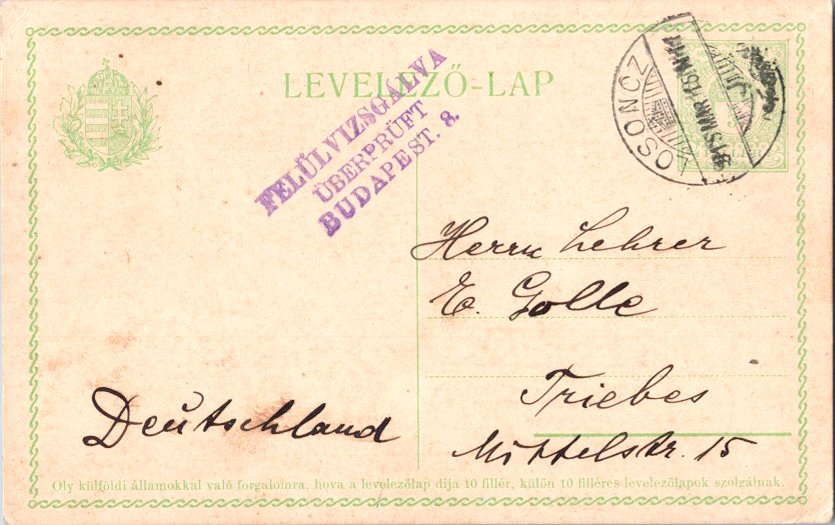 LEVELEZŐ-LAP
FELÜLVIZSGÁLVA
ÜBERPRÜFT
BUDAPEST. 8.
LOSONCZ
915 MÁR 15 N 11
Herrn Lehrer
E. Golle
Triebes
Mittelstr. 15
Deutschland
Oly külföldi államokkal való forgalomra, hova a levelezőlap dija 10 fillér, külön 10 filléres levelezőlapok szolgálnak.